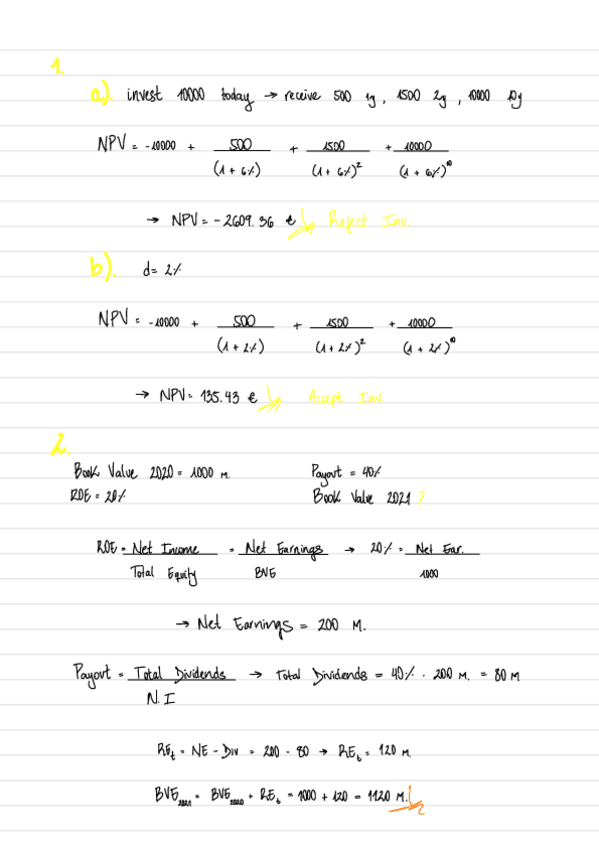 1.
a). invest 10000 today → receive 500 1y, 1500 2y, 10000 10y
NPV = -10000 + 500/(1 + 6%) + 1500/(1 + 6%)² + 10000/(1 + 6%)¹⁰
→ NPV = -2609.36 € Reject Inv.
b). d= 2%
NPV = -10000 + 500/(1 + 2%) + 1500/(1 + 2%)² + 10000/(1 + 2%)¹⁰
→ NPV = 135.43 € Accept Inv.
2.
Book Value 2020 = 1000 M. Payout = 40%
ROE = 20% Book Value 2021 ?
ROE = Net Income/Total Equity = Net Earnings/BVE → 20% = Net Ear./1000
→ Net Earnings = 200 M.
Payout = Total Dividends/N.I → Total Dividends = 40% · 200 M. = 80 M
REt = NE - Div = 200 - 80 → REt = 120 M.
BVE2021 = BVE2020 + REt = 1000 + 120 = 1120 M.